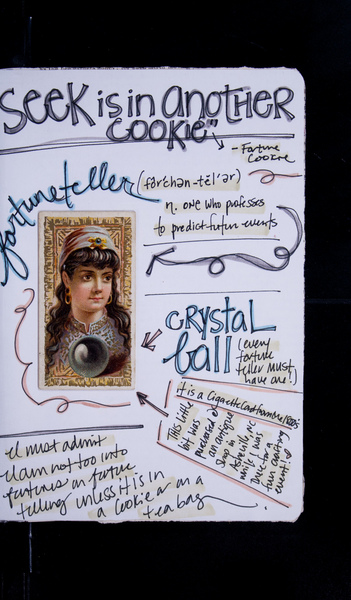 SEEK is in another
cookie"
- Fortune
Cookie
fortune teller (fôr'chən-tĕl'ər)
n. one who professes
to predict future events
CRYSTAL
ball
(every
fortune
teller must
have one!)
it is a Cigarette Card from the 1880s
This little
bit was
purchased @
an antique
shop in
Asheville, NC
while I was
there for a
fun
event!
I must admit
I am not too into
fortunes or future
telling unless it is in
a cookie or on a
tea bag